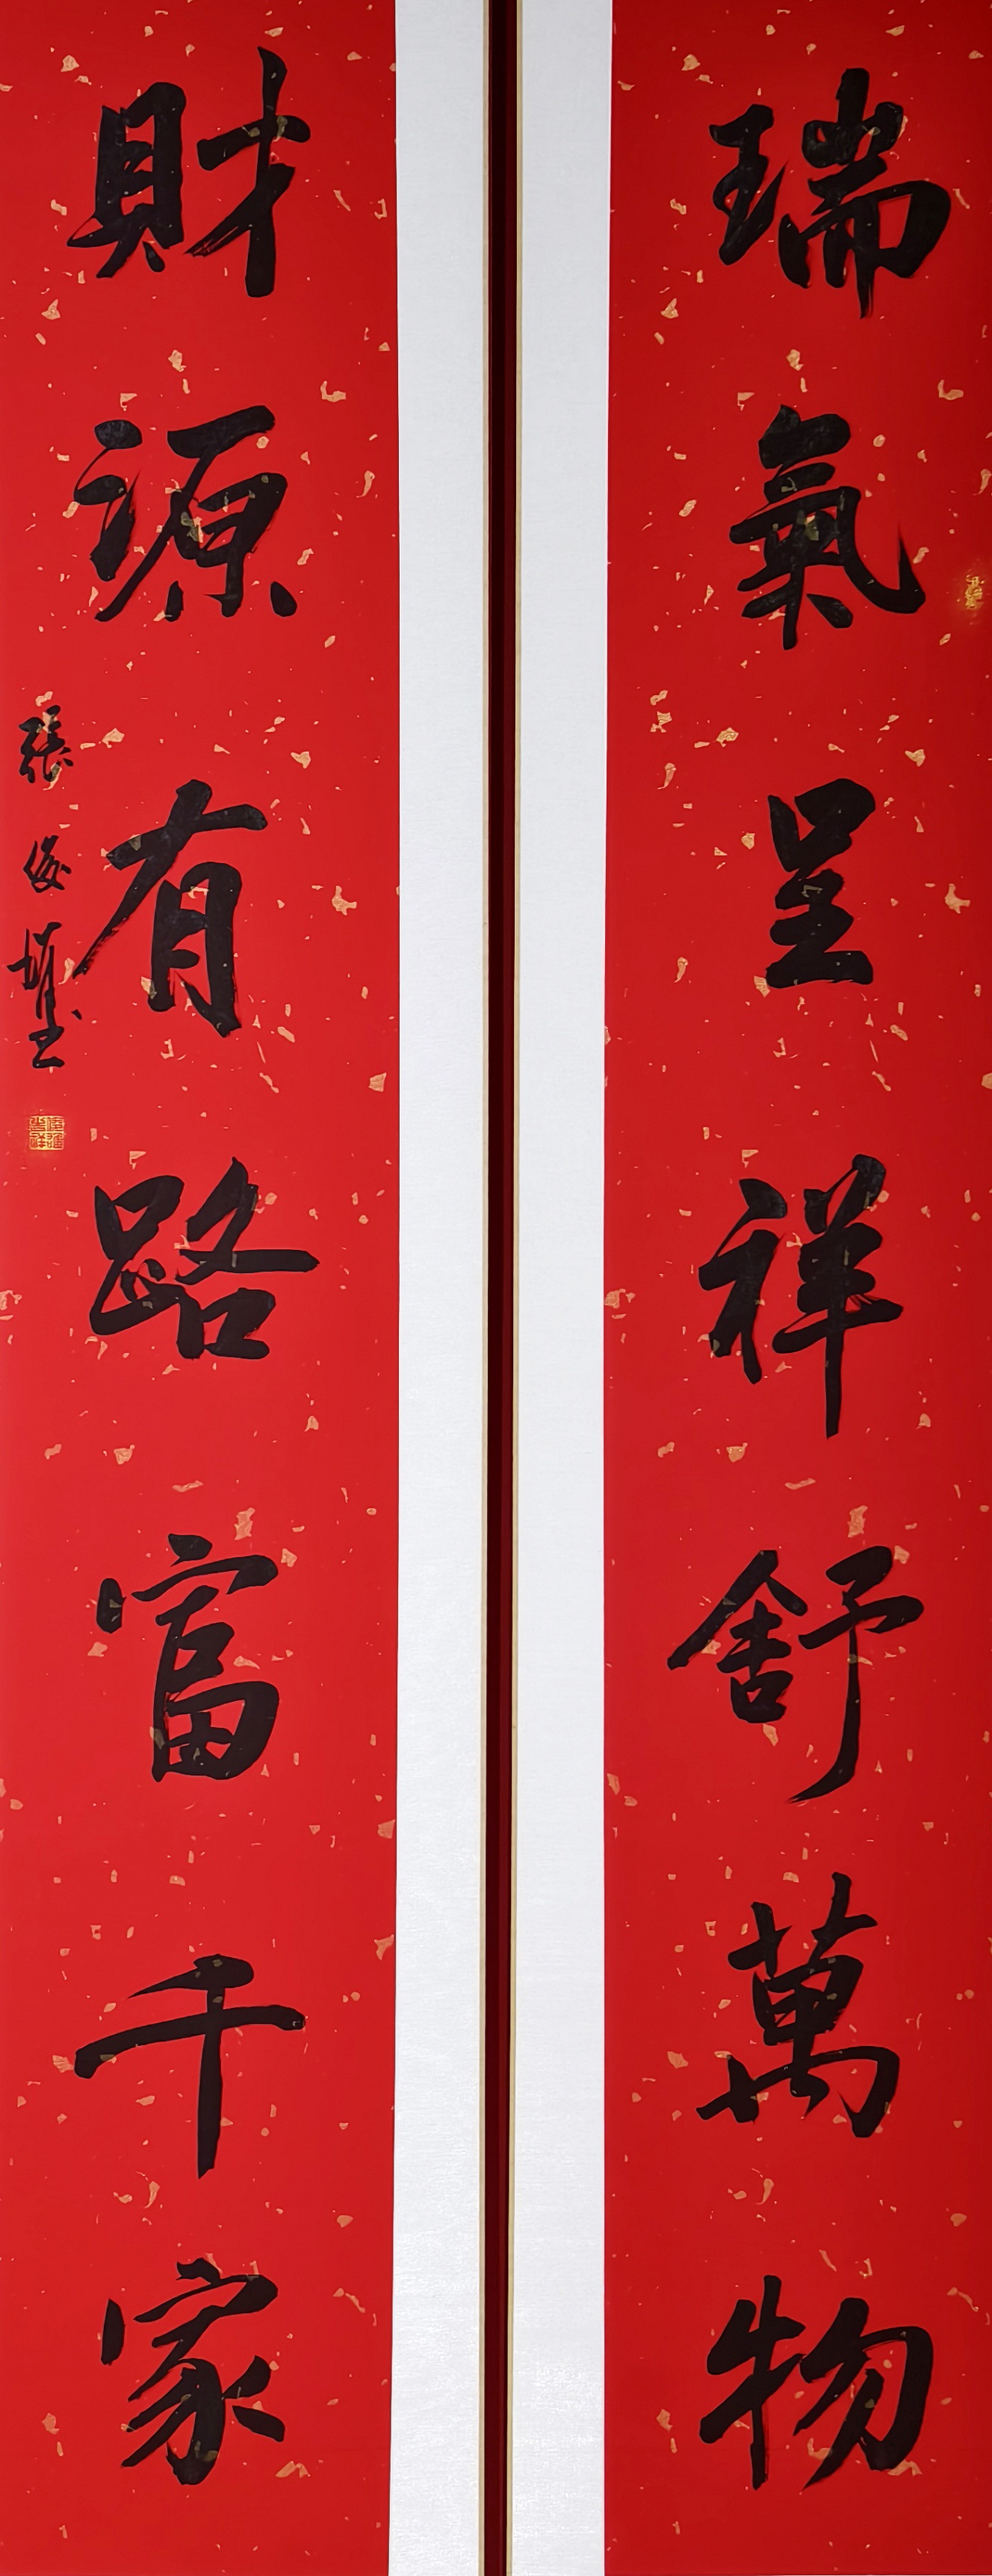 瑞氣呈祥舒萬物
財源有路富千家
張俊